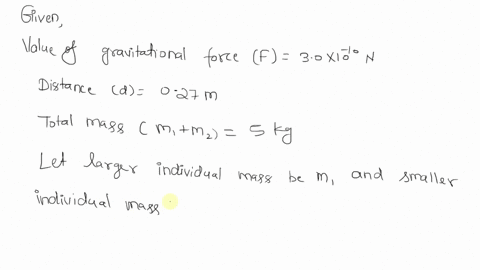 Given,
Value of gravitational force (F) = 3.0×10⁻¹⁰ N
Distance (d) = 0.27 m
Total mass (m₁+m₂) = 5 kg
Let larger individual mass be m₁ and smaller
individual mass